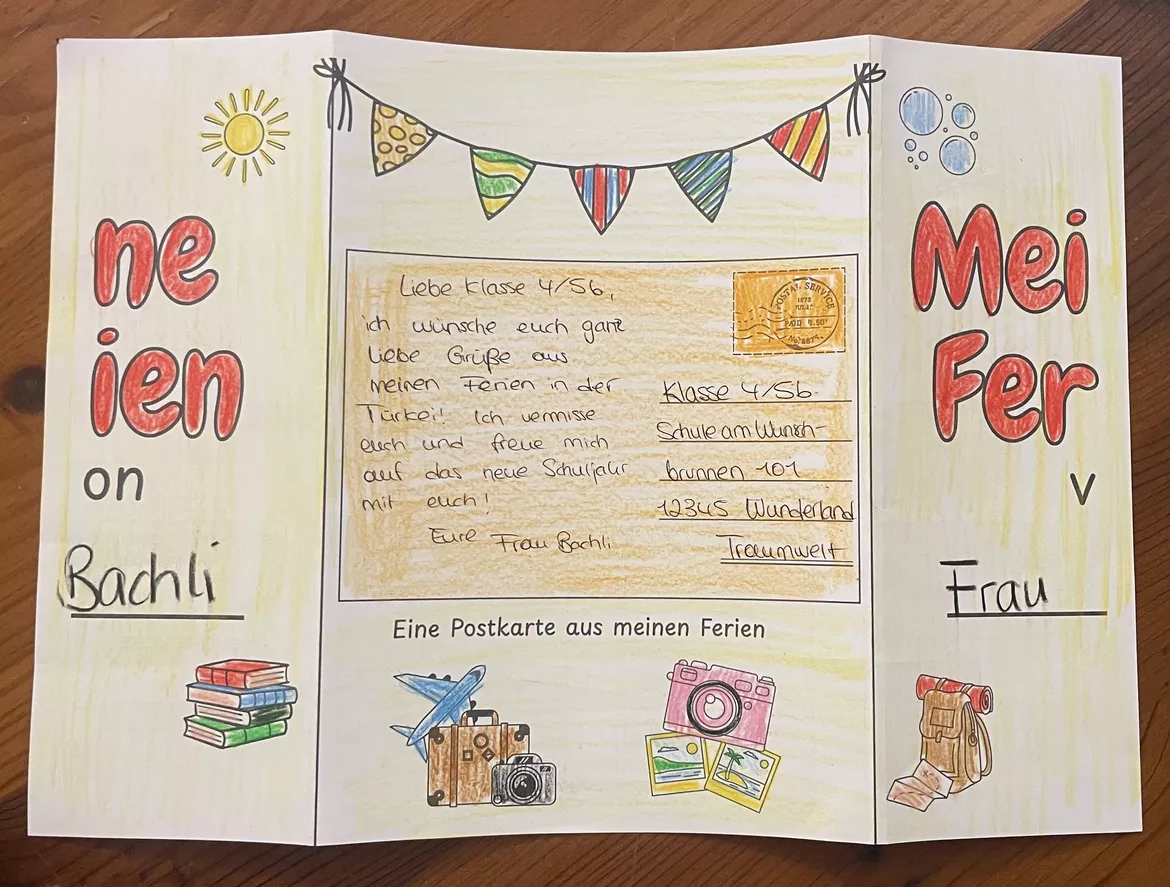 ne
ien
on
Bachli
Liebe Klasse 4/5b,
ich wünsche euch ganz
liebe Grüße aus
meinen Ferien in der
Türkei! Ich vermisse
euch und freue mich
auf das neue Schuljahr
mit euch!
Eure Frau Bachli
POSTAL SERVICE
1973
PAID 7.50
Klasse 4/5b
Schule am Wunsch-
brunnen 101
12345 Wunderland
Traumwelt
Eine Postkarte aus meinen Ferien
Mei
Fer
v
Frau